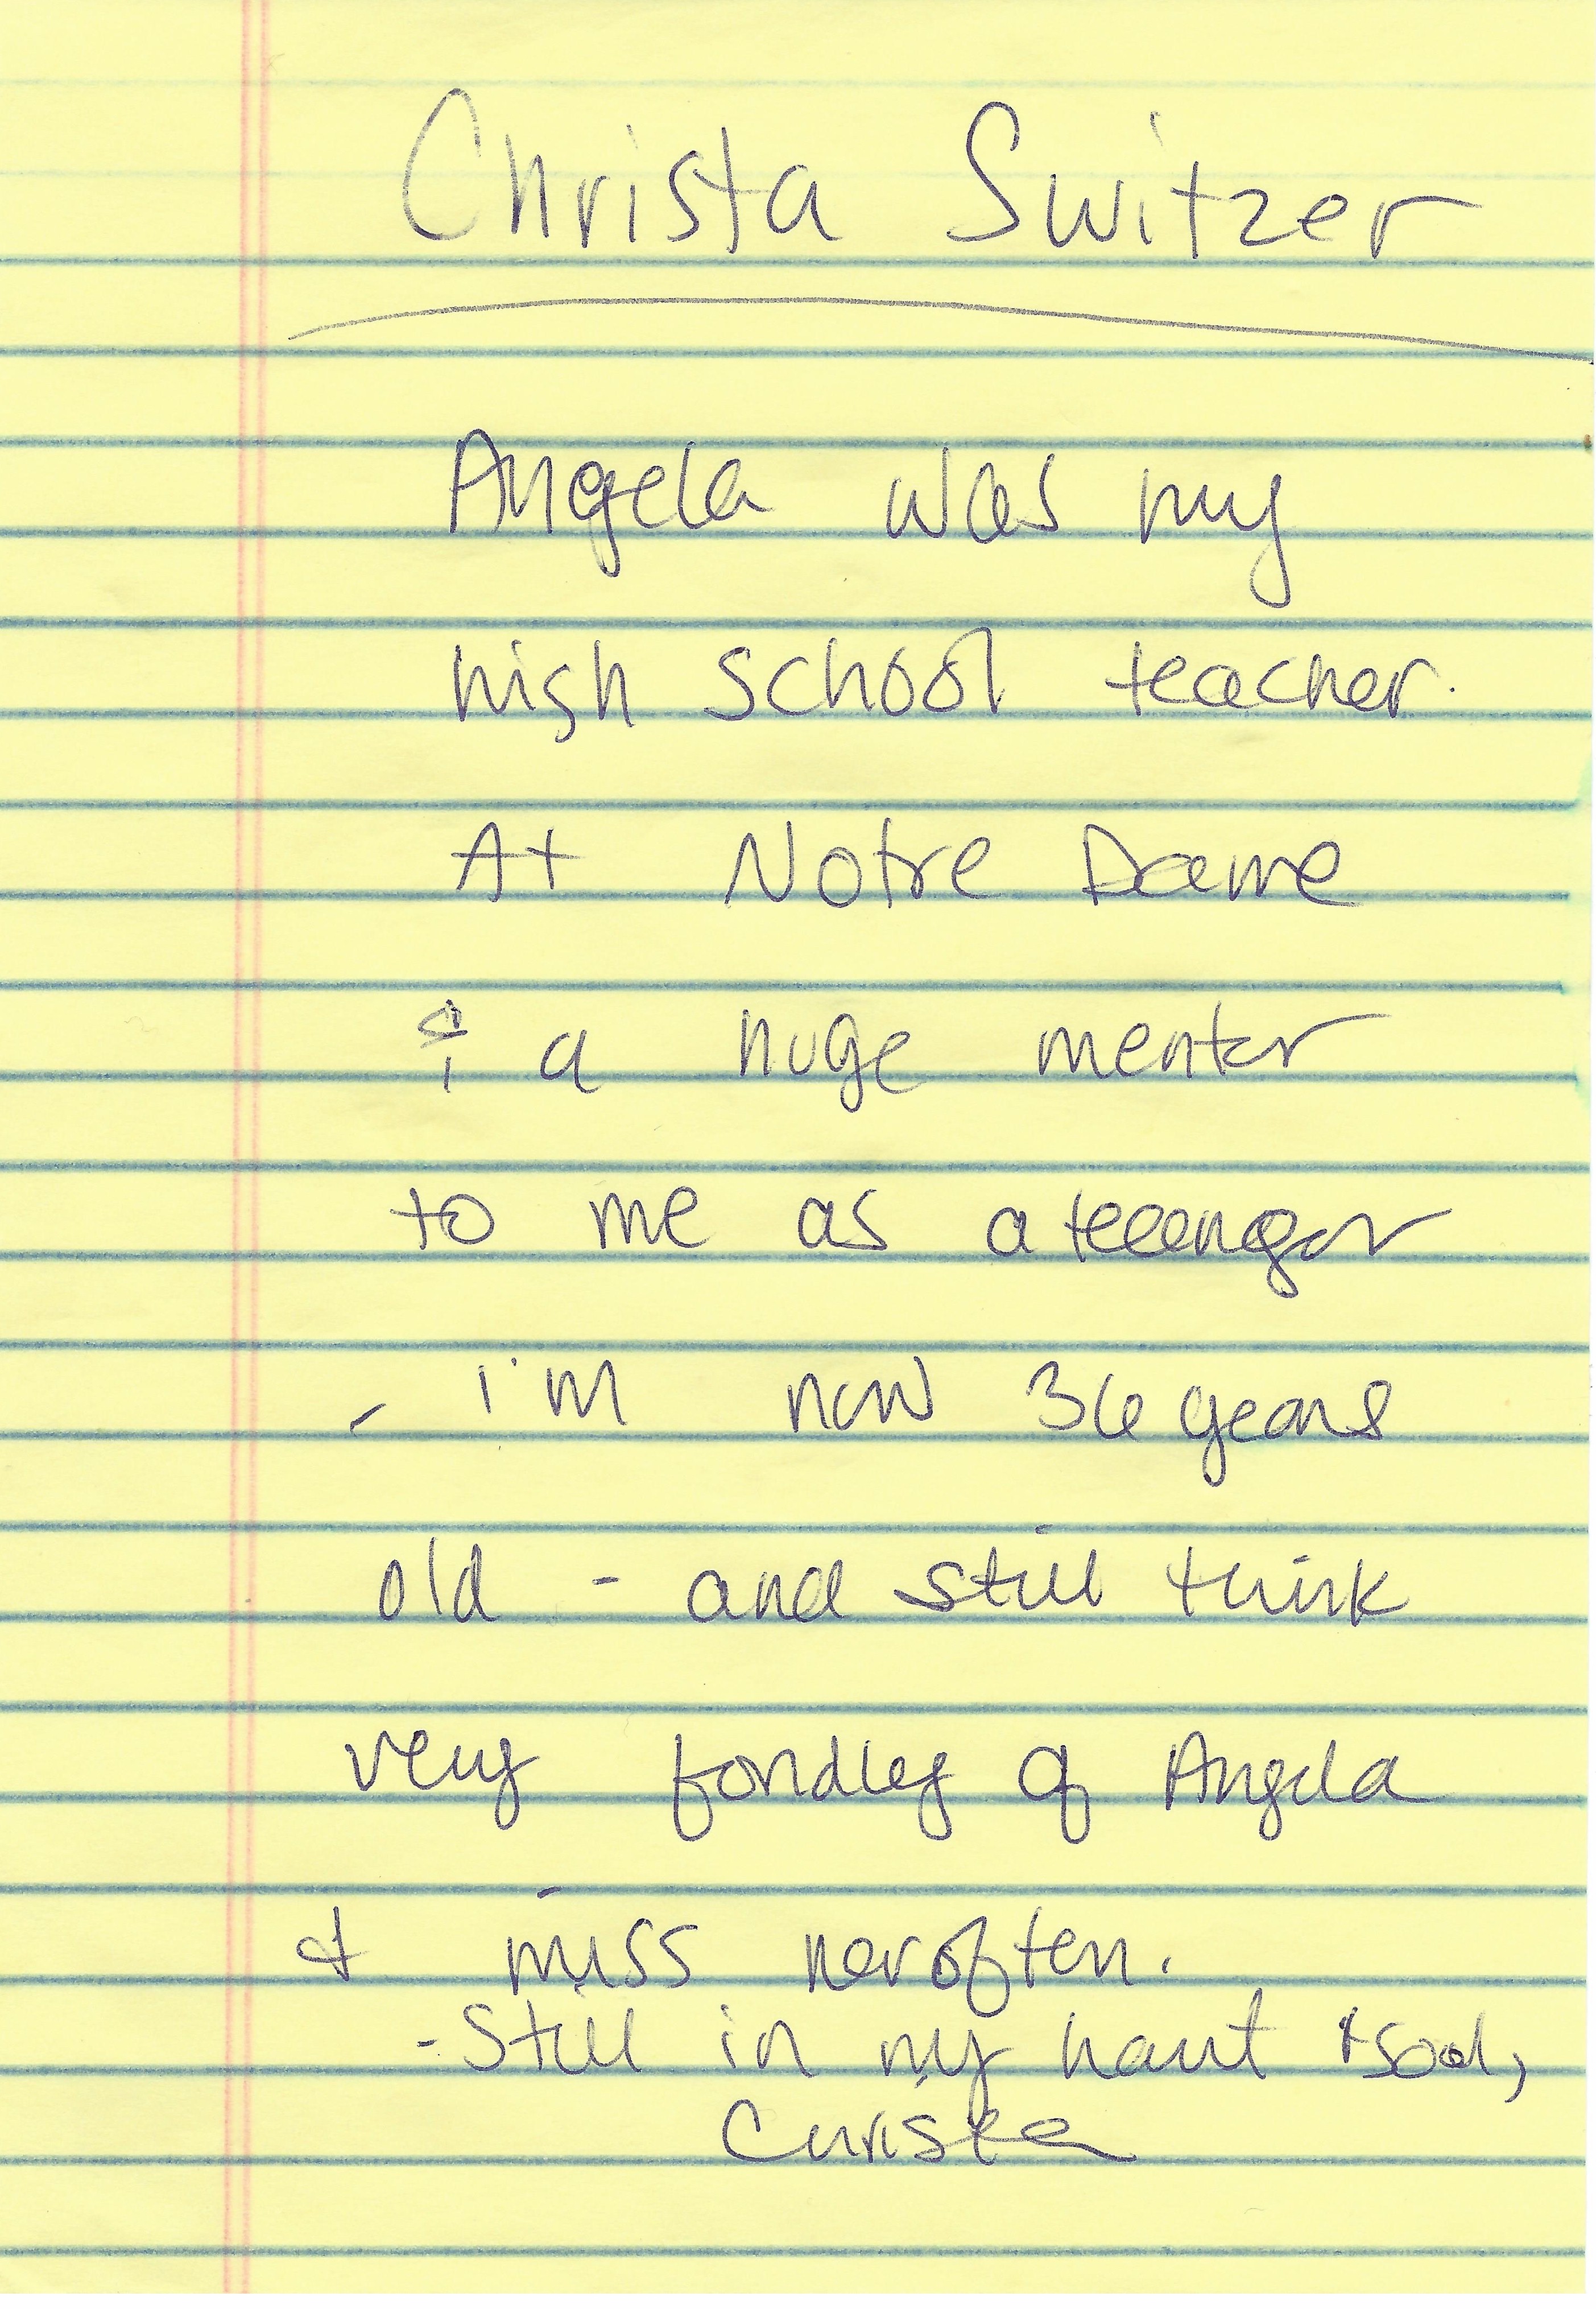 Christa Switzer
Angela was my
high school teacher.
At Notre Dame
& a huge mentor
to me as a teeenger
- i'm now 36 years
old - and still think
very fondley of Angela
& miss her often.
- Still in my heart & soul,
Christa